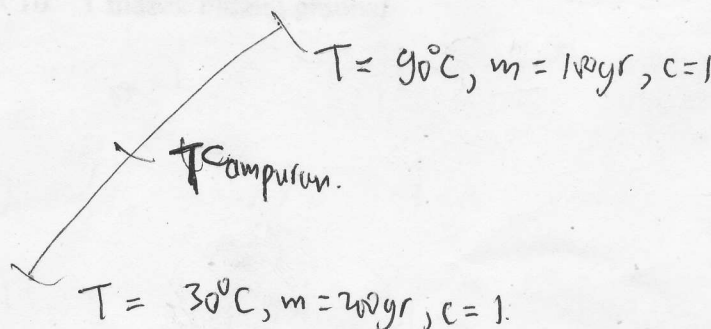 T = 90°C, m = 100gr, c = 1
TCampuran.
T = 30°C, m = 200gr, c = 1.